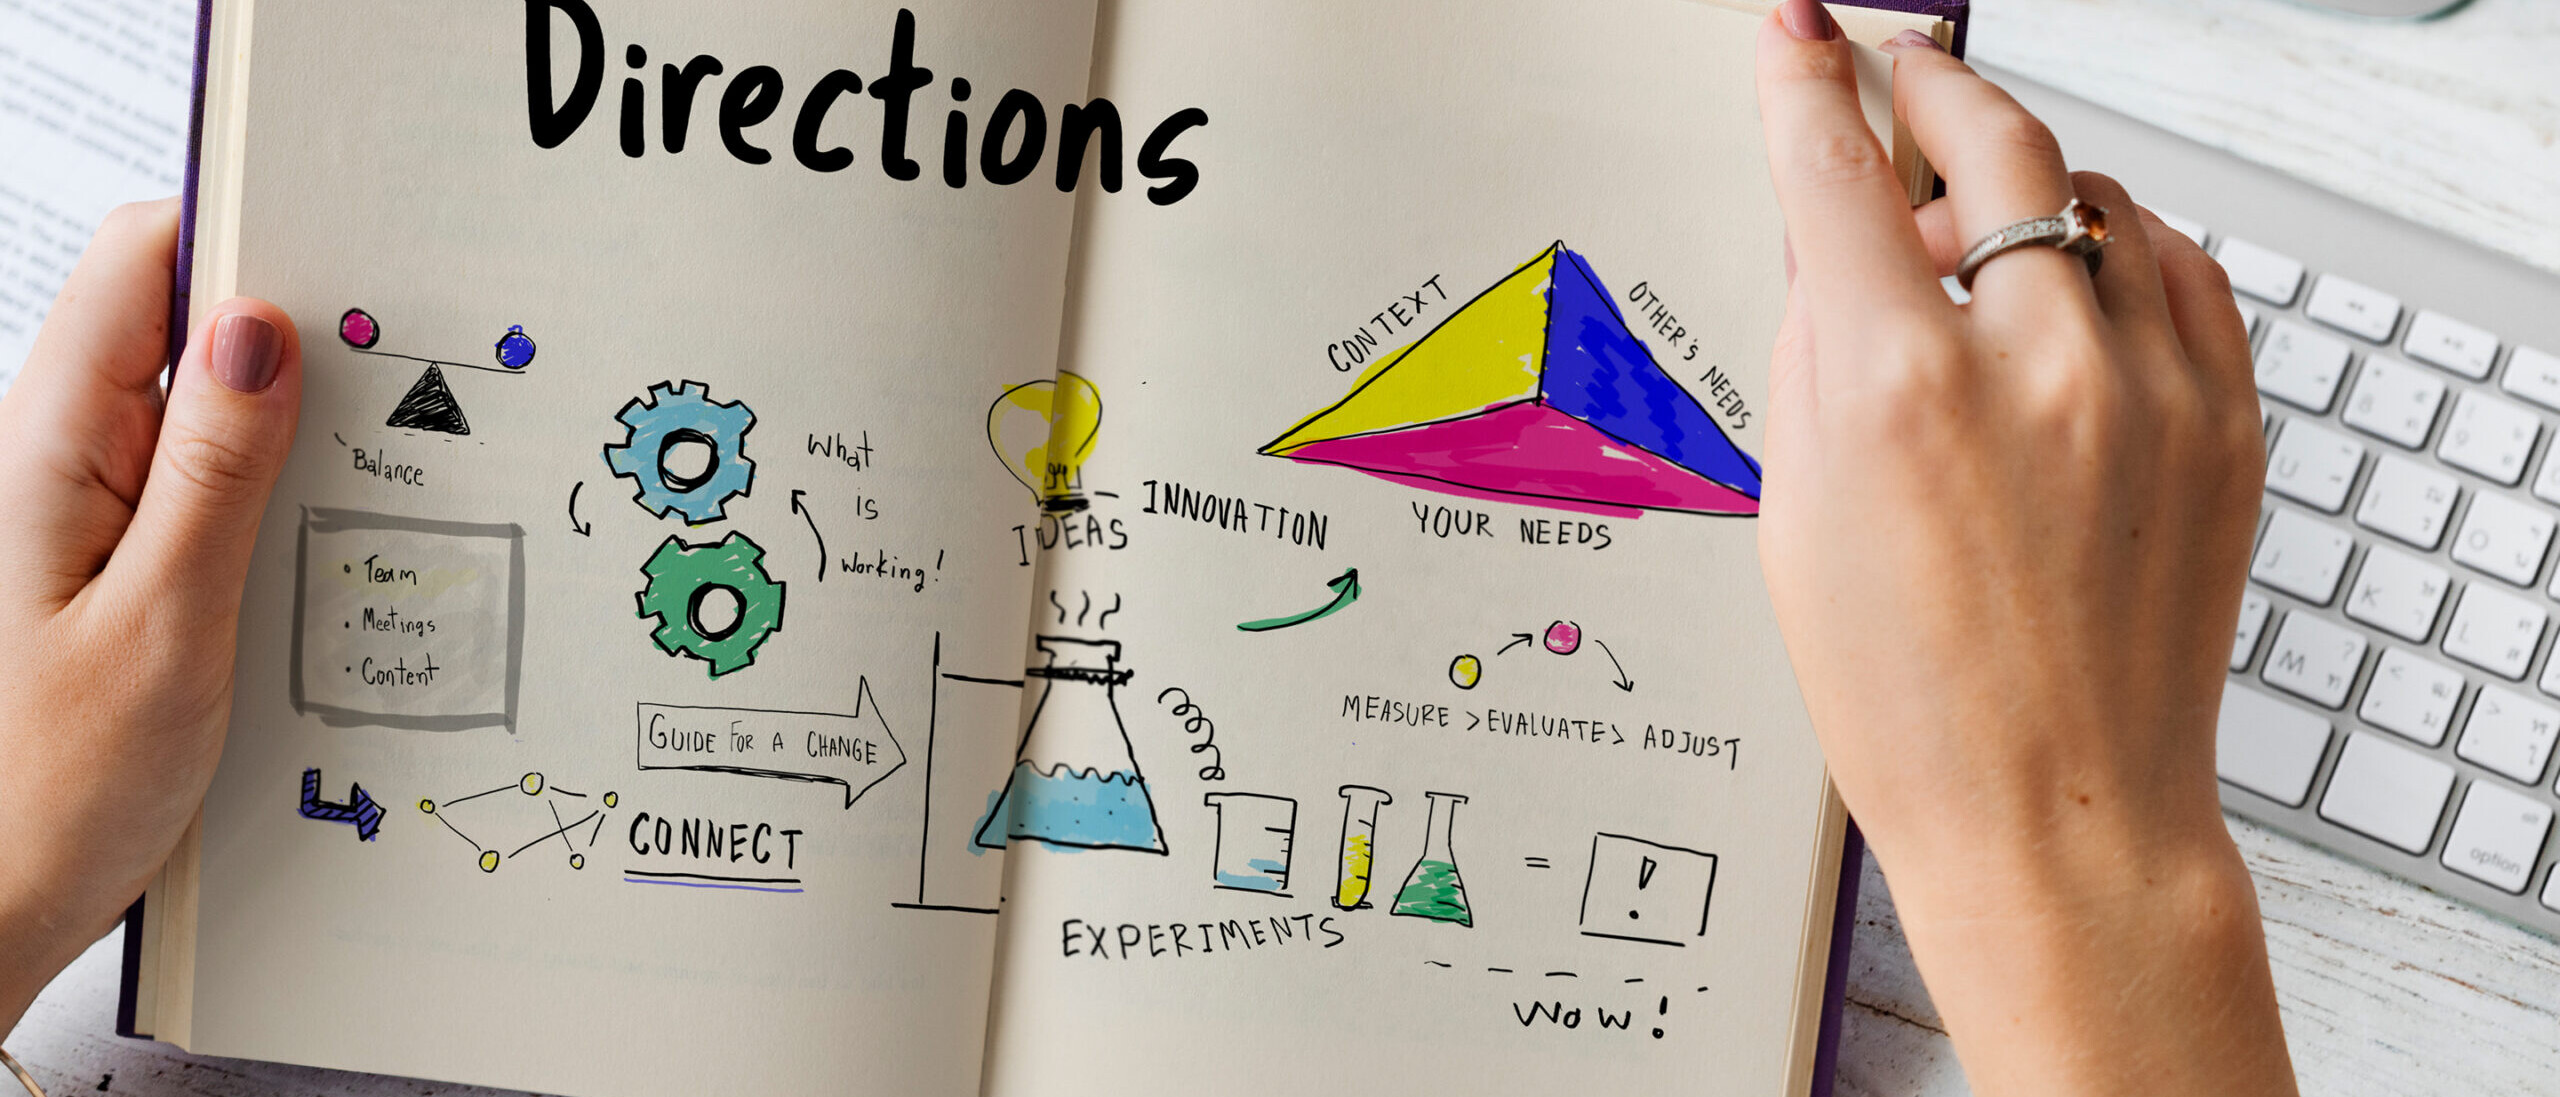 Directions
Balance
• Team
• Meetings
• Content
What
is
working!
GUIDE FOR A CHANGE
CONNECT
IDEAS
INNOVATION
CONTEXT
OTHER'S NEEDS
YOUR NEEDS
MEASURE > EVALUATE > ADJUST
EXPERIMENTS
=
!
WOW!
option